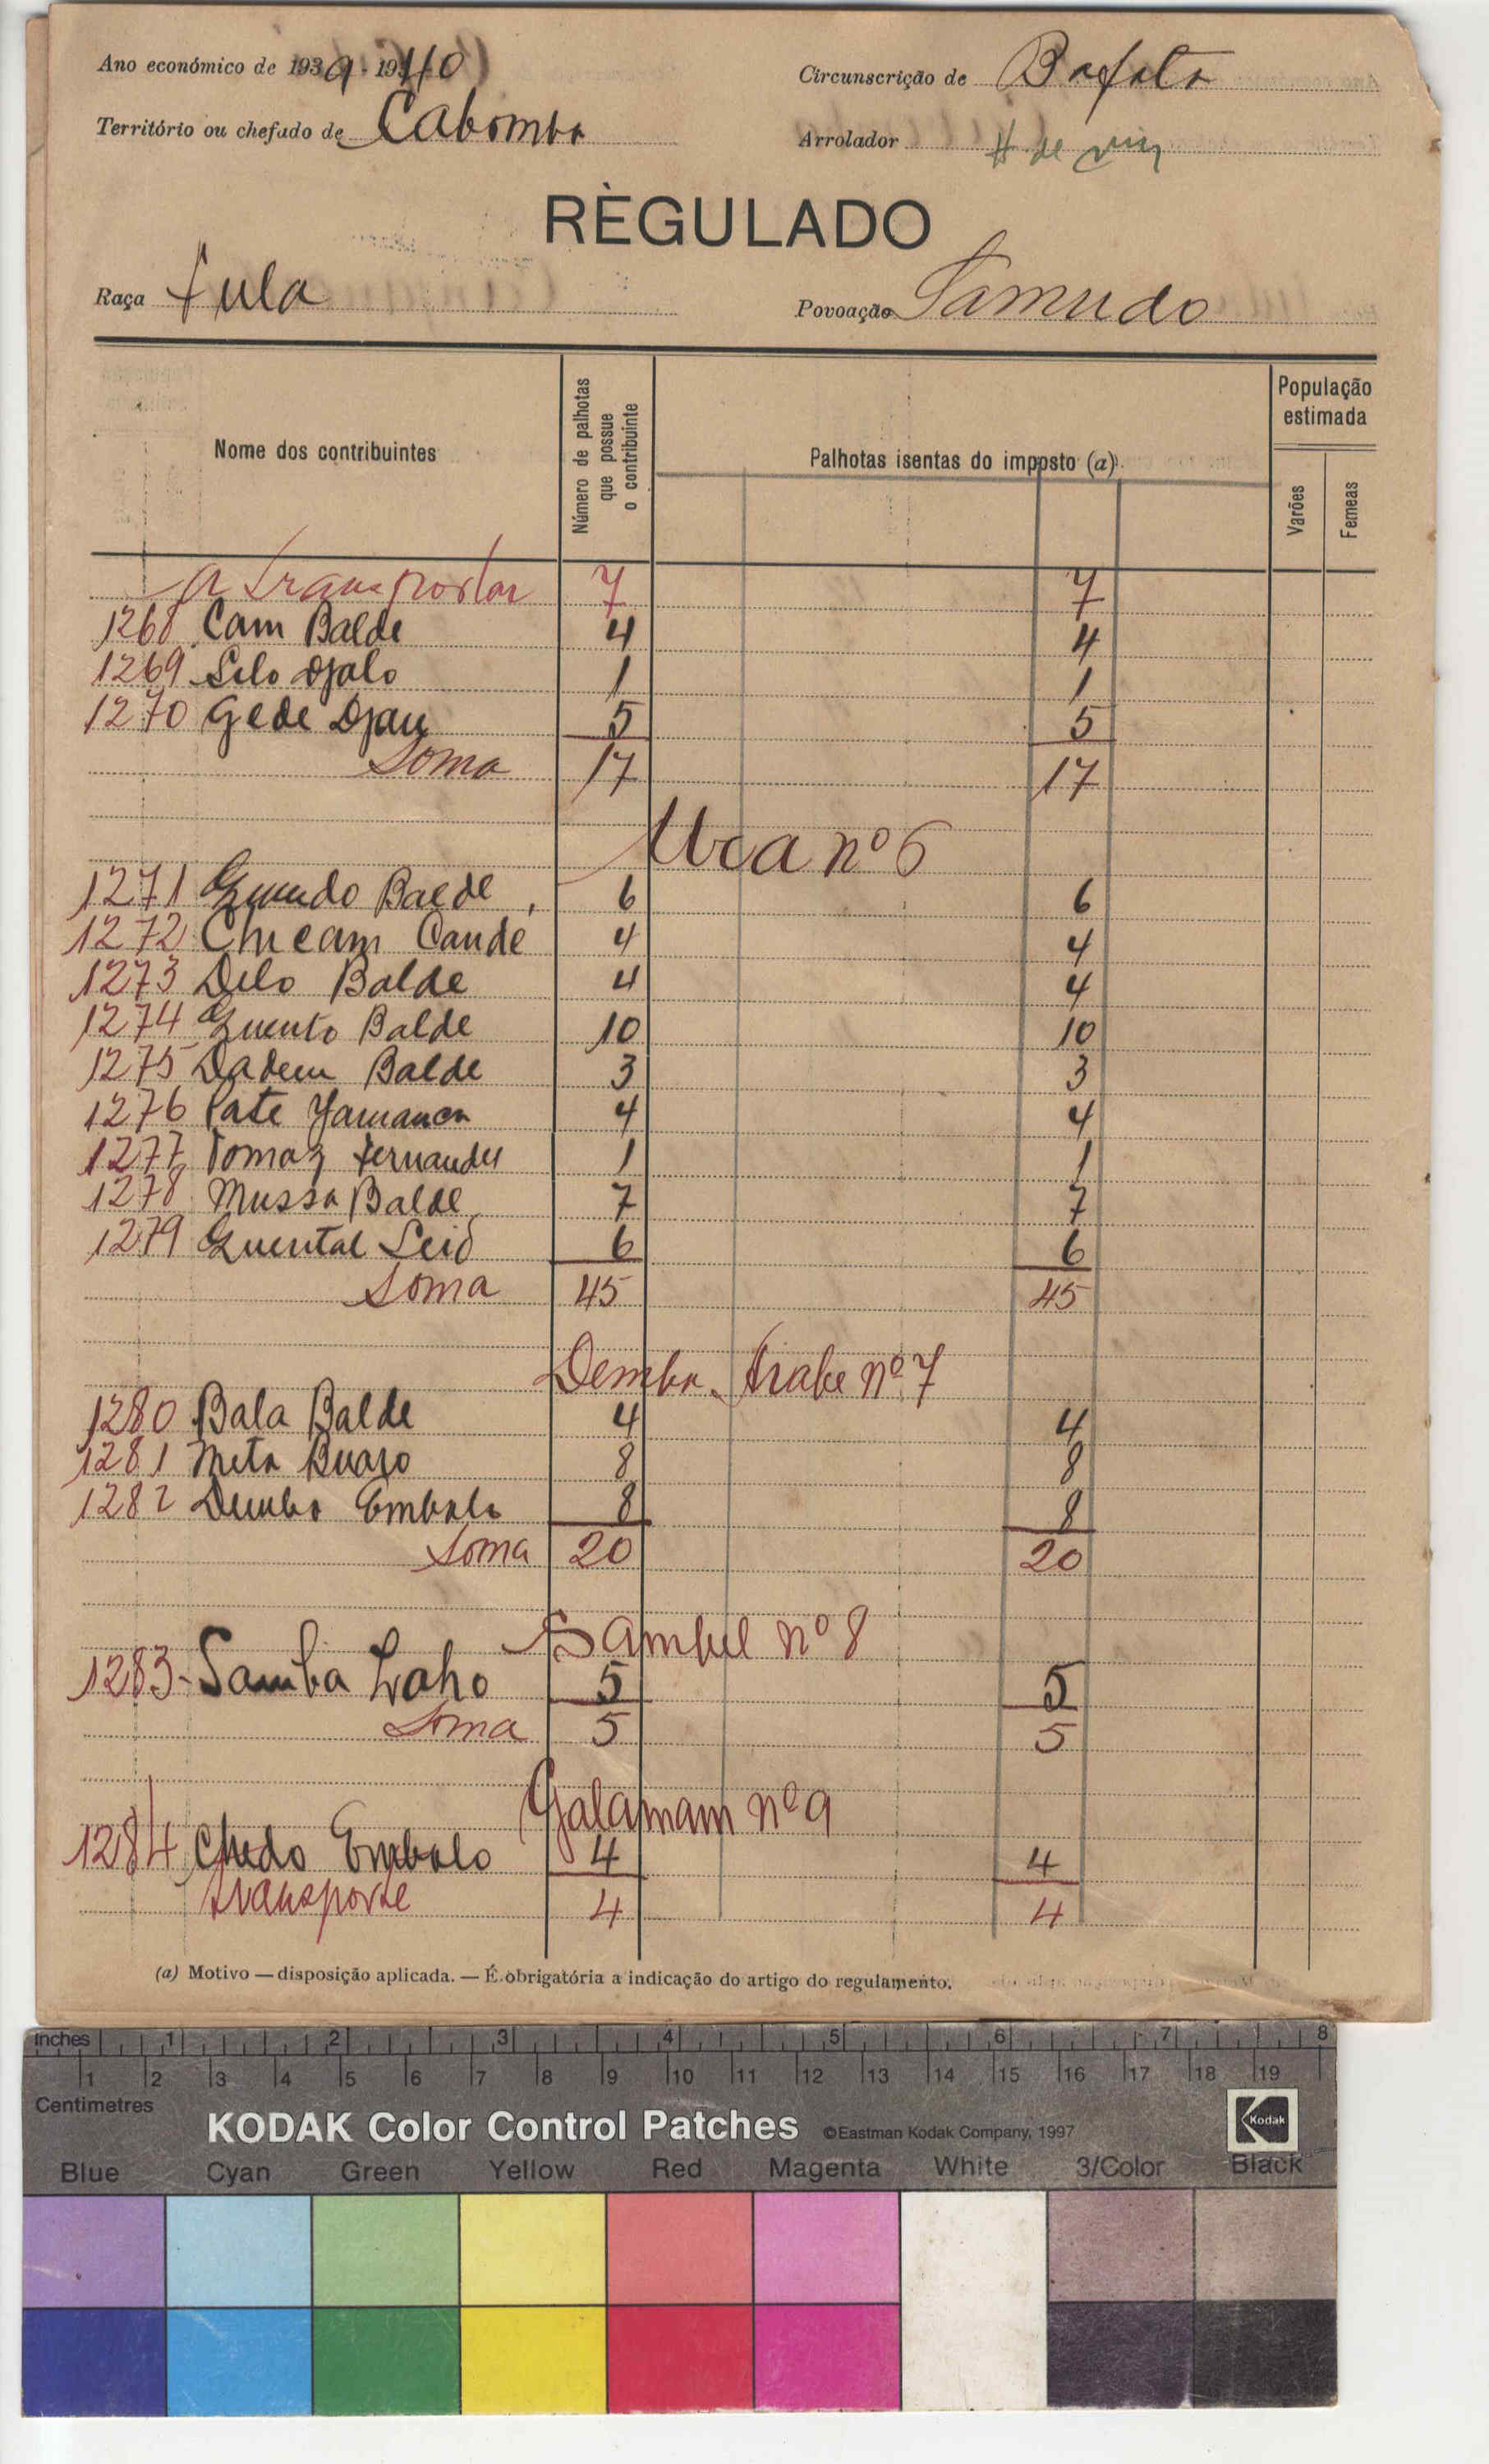 Ano económico de 1939-1940
Circunscrição de Bafata
Território ou chefado de Cabomba
Arrolador
RÈGULADO
Raça Fula
Povoação Samudo
Nome dos contribuintes
Número de palhotas que possue o contribuinte
Palhotas isentas do imposto (a)
População estimada
Varões
Femeas
a transportar 7 7
1268 Cam Balde 4 4
1269 Silo Djalo 1 1
1270 Gede Djau 5 5
Soma 17 17
nº 6
1271 Balde 6 6
1272 Cande 4 4
1273 Dilo Balde 4 4
1274 Guento Balde 10 10
1275 Dadem Balde 3 3
1276 Pate 4 4
1277 Tomaz Fernandes 1 1
1278 Mussa Balde 7 7
1279 6 6
Soma 45 45
Demba Arabe nº 7
1280 Bala Balde 4 4
1281 Meta Buaro 8 8
1282 Demba Embalo 8 8
Soma 20 20
nº 8
1283- Samba 5 5
Soma 5 5
Galamam nº 9
1284 Chedo Embalo 4 4
transporte 4 4
(a) Motivo — disposição aplicada. — É obrigatória a indicação do artigo do regulamento.
inches 1 2 3 4 5 6 7 8
1 2 3 4 5 6 7 8 9 10 11 12 13 14 15 16 17 18 19
Centimetres
KODAK Color Control Patches ©Eastman Kodak Company, 1997 Kodak
Blue Cyan Green Yellow Red Magenta White 3/Color Black